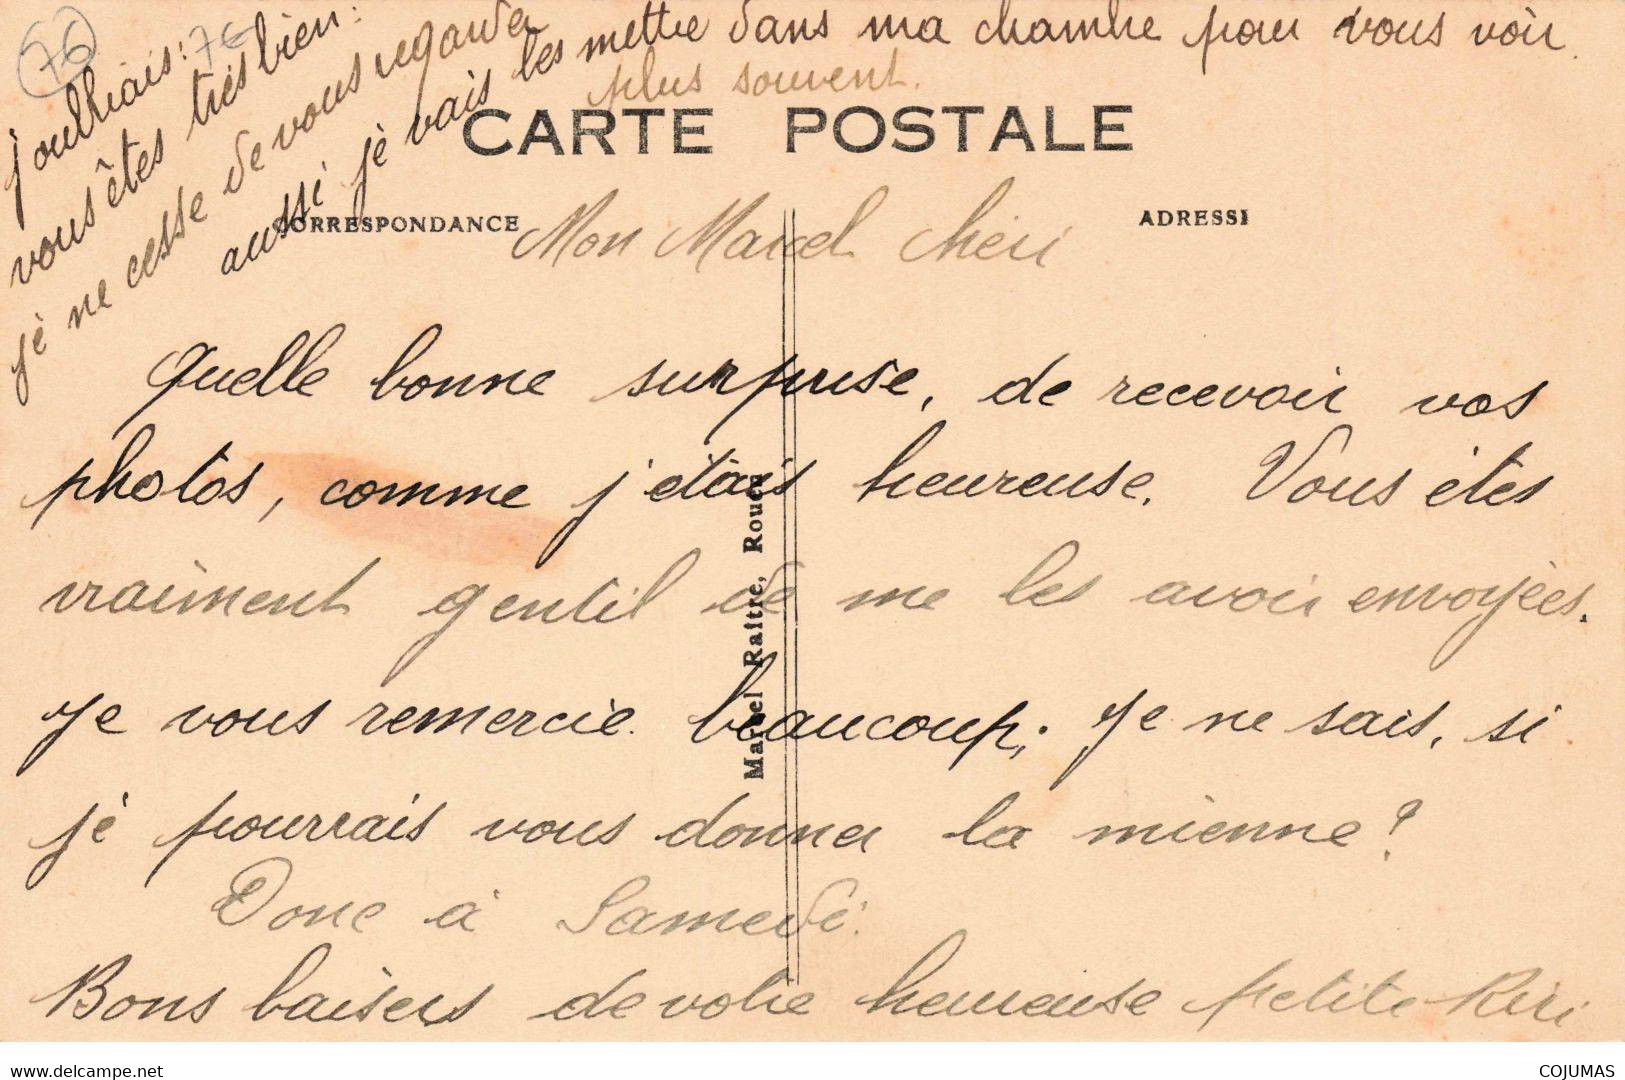 76
7€
joulliais:
vous êtes très bien:
je ne cesse de vous regarder
aussi je vais les mettre dans ma chambre pour vous voir
plus souvent.
CARTE POSTALE
CORRESPONDANCE
ADRESSE
Mon Marcel Chéri
Quelle bonne surprise, de recevoir vos
photos, comme j'étais heureuse. Vous êtes
vraiment gentil de me les avoir envoyées.
Je vous remercie beaucoup; Je ne sais, si
je pourrais vous donner la mienne?
Donc à Samedi.
Bons baisers de votre heureuse petite Riri
Marcel Raitre, Rouen
delcampe.net
COJUMAS